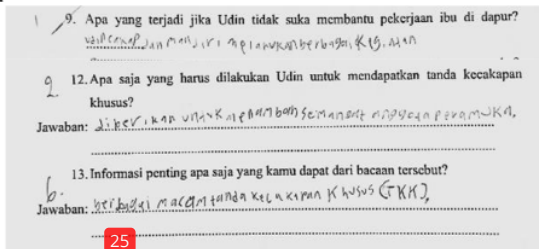 9. Apa yang terjadi jika Udin tidak suka membantu pekerjaan ibu di dapur?
dan mandiri melakukan berbagai kegiatan
9
12. Apa saja yang harus dilakukan Udin untuk mendapatkan tanda kecakapan
khusus?
Jawaban: diberikan untuk menambah semangat anggota pramuka,
13. Informasi penting apa saja yang kamu dapat dari bacaan tersebut?
6.
Jawaban: berbagai macam tanda kecakapan khusus (TKK),
25